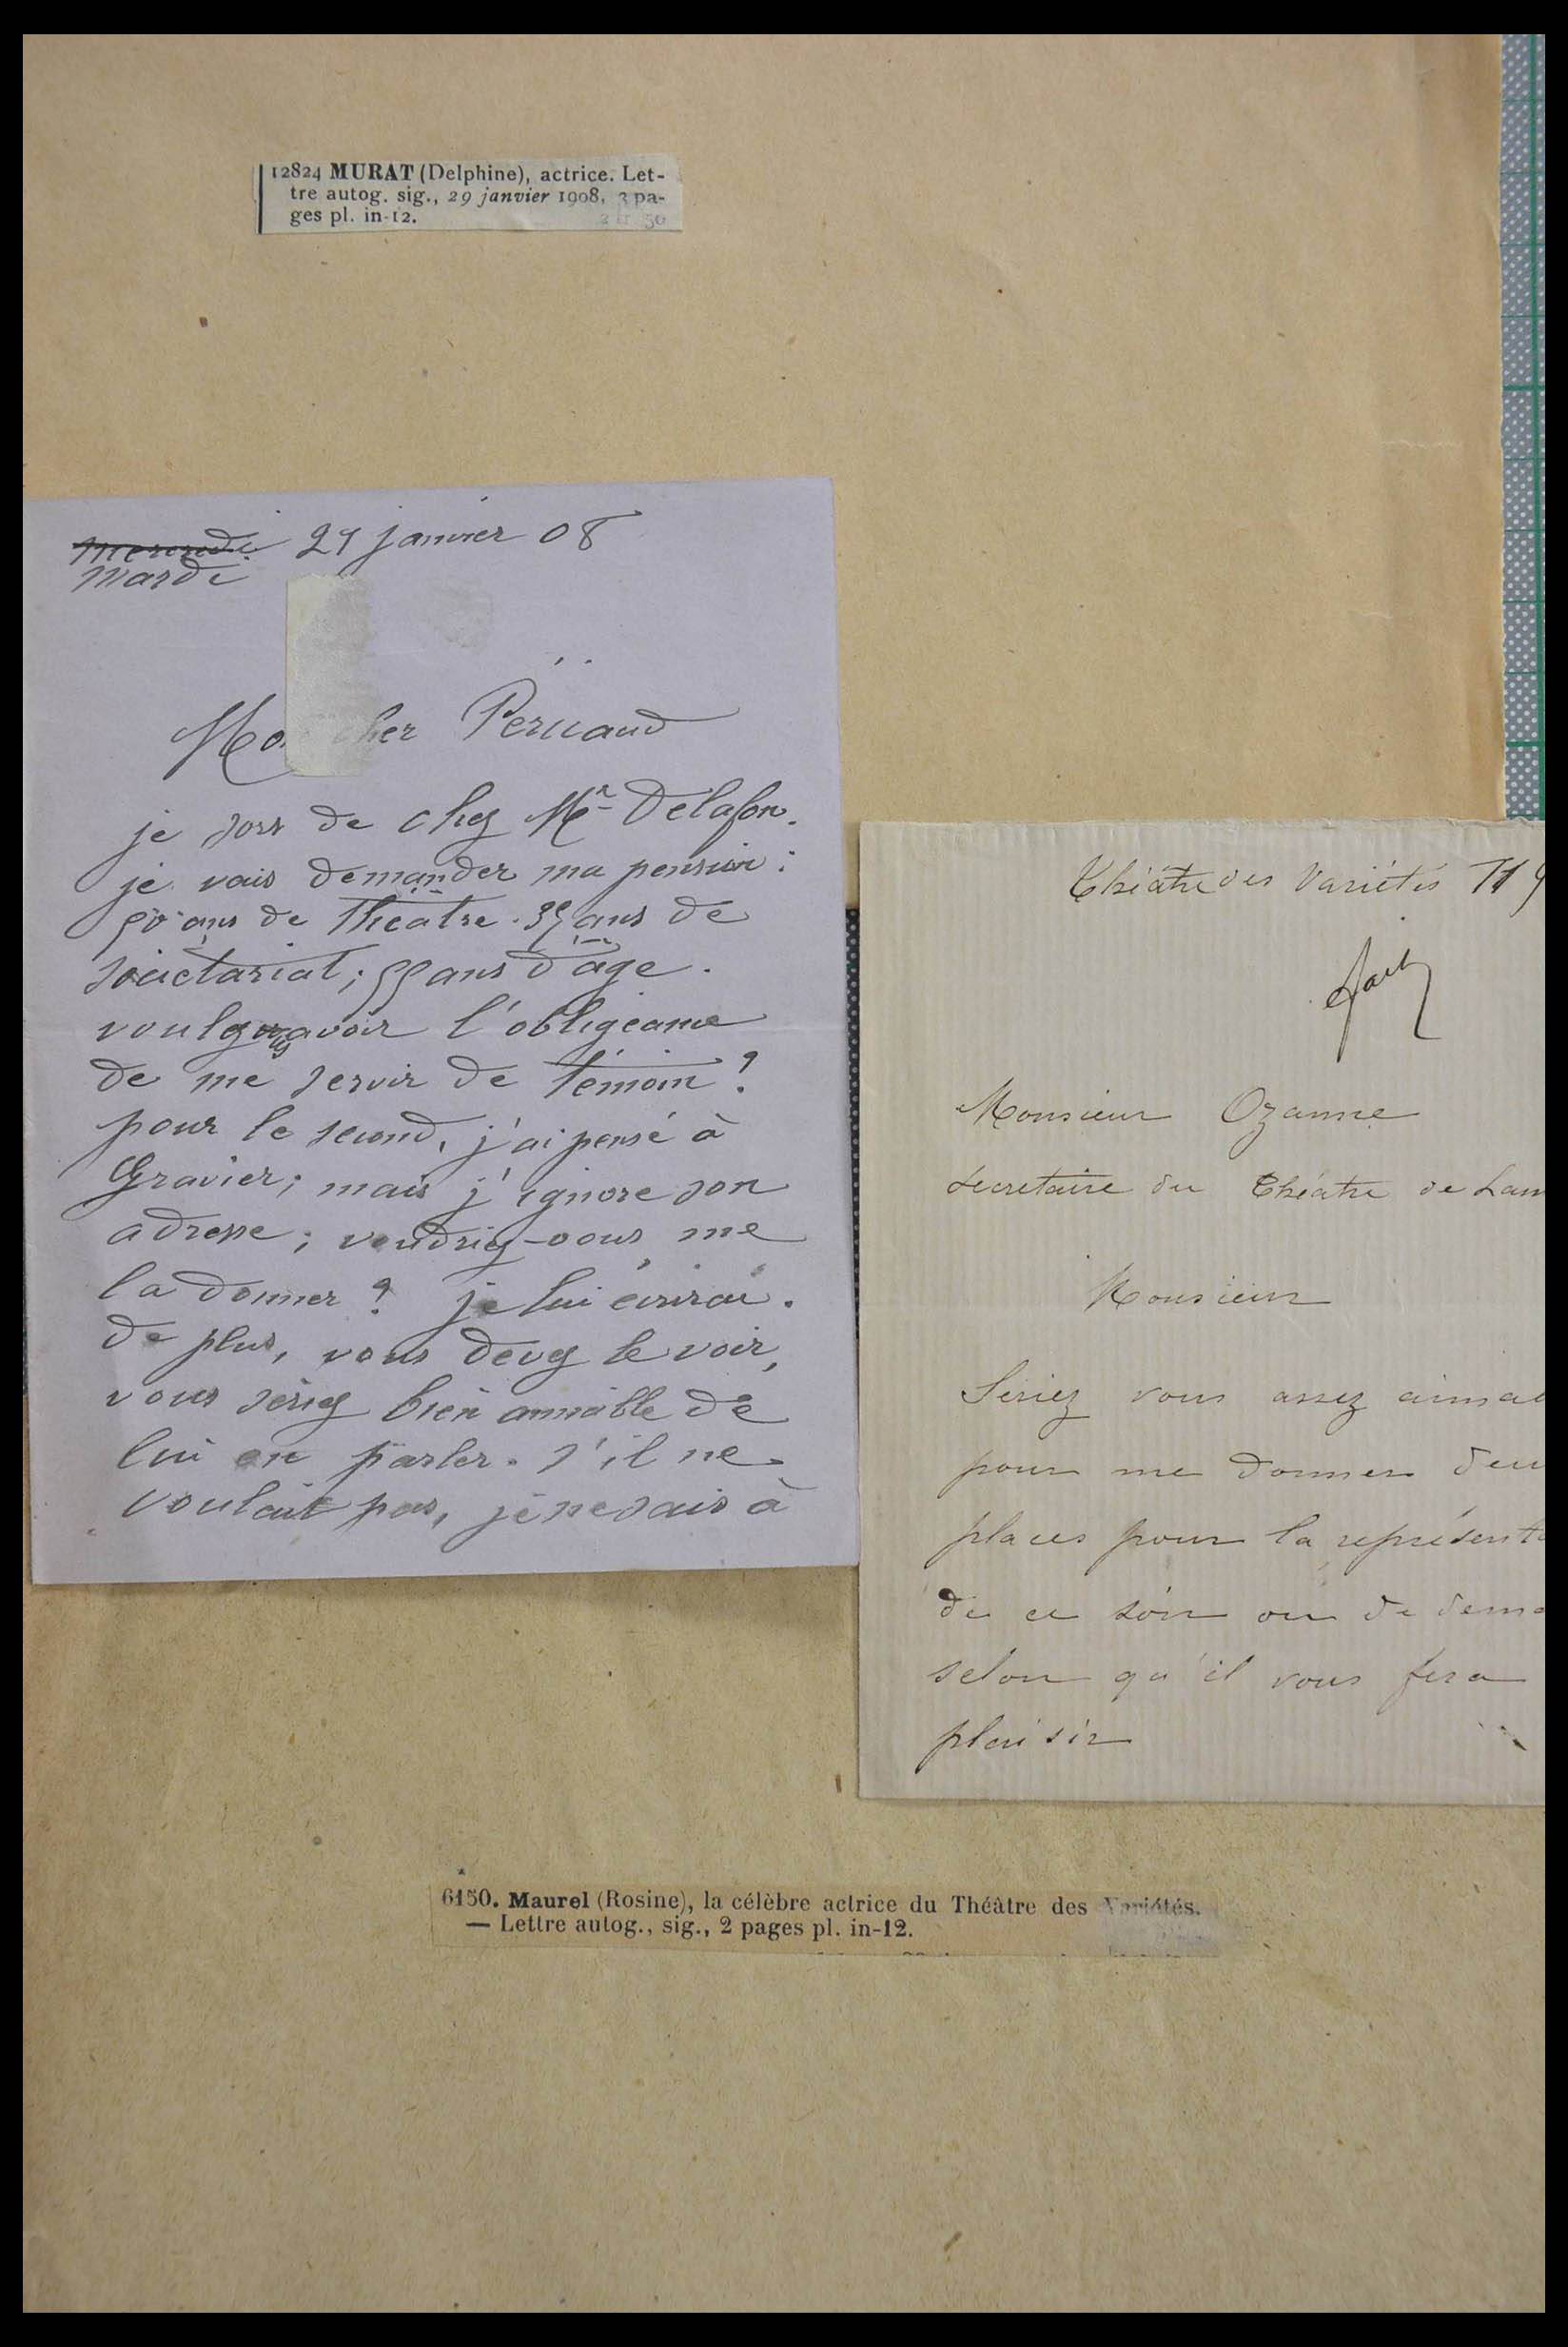 12824 MURAT (Delphine), actrice. Let-
tre autog. sig., 29 janvier 1908, 3 pa-
ges pl. in-12. 2 fr. 50
mercredi 29 janvier 08
mardi
Mon cher Péricaud
je sors de chez Mr Delafon.
je vais demander ma pension:
50 ans de Théâtre. 35 ans de
sociétariat; 55 ans d'âge.
voulez avoir l'obligeance
de me servir de témoin?
pour le second, j'ai pensé à
Gravier; mais j'ignore son
adresse; voudriez-vous me
la donner? je lui écrirai.
de plus, vous devez le voir,
vous seriez bien aimable de
lui en parler. s'il ne
voulait pas, je ne sais à
Théâtre des Variétés
Monsieur Ozanne
secretaire du Théatre de
Monsieur
Seriez vous assez aimab
pour me donner deu
places pour la représenta
de ce soir ou de dema
selon qu'il vous fera
plaisir
6150. Maurel (Rosine), la célèbre actrice du Théâtre des Variétés.
— Lettre autog., sig., 2 pages pl. in-12.